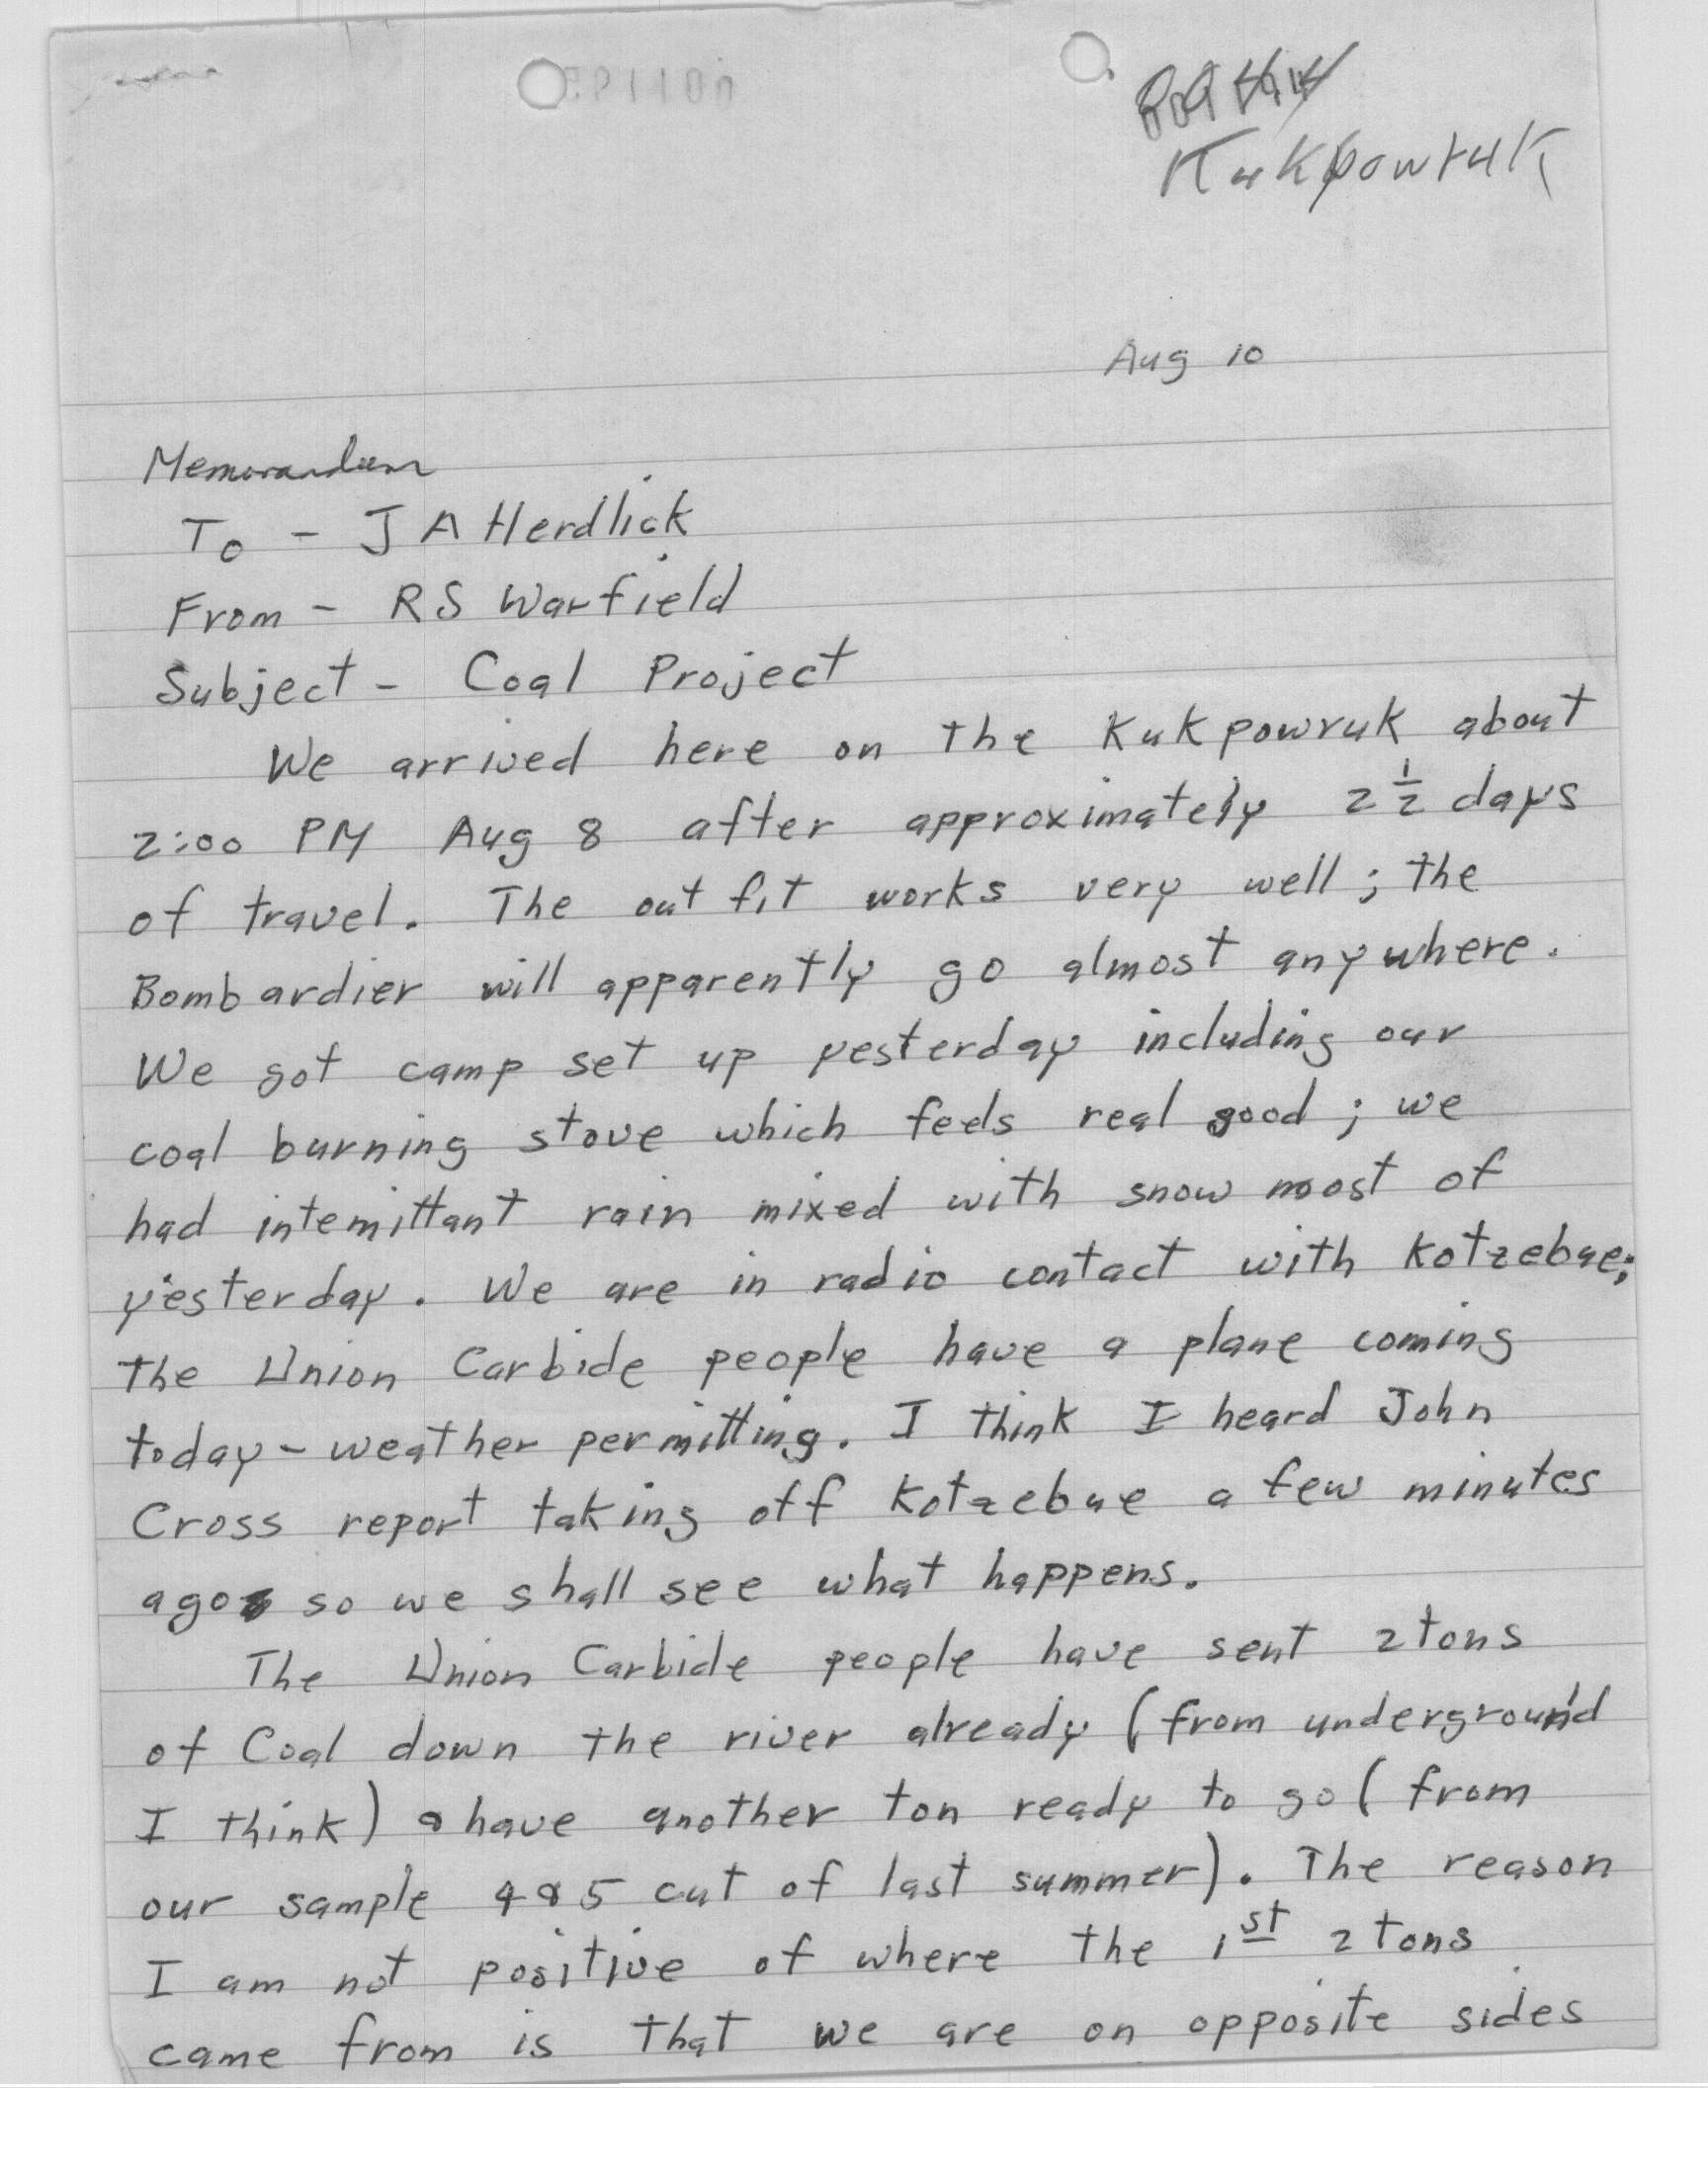 Kukpowruk
Aug 10
Memorandum
To - J A Herdlick
From - RS Warfield
Subject - Coal Project
We arrived here on the Kukpowruk about
2:00 PM Aug 8 after approximately 2 1/2 days
of travel. The outfit works very well; the
Bombardier will apparently go almost anywhere.
We got camp set up yesterday including our
coal burning stove which feels real good; we
had intemittant rain mixed with snow most of
yesterday. We are in radio contact with Kotzebue;
the Union Carbide people have a plane coming
today - weather permitting. I think I heard John
Cross report taking off Kotzebue a few minutes
ago so we shall see what happens.
The Union Carbide people have sent 2 tons
of Coal down the river already (from underground
I think) & have another ton ready to go (from
our sample 4 & 5 cut of last summer). The reason
I am not positive of where the 1st 2 tons
came from is that we are on opposite sides